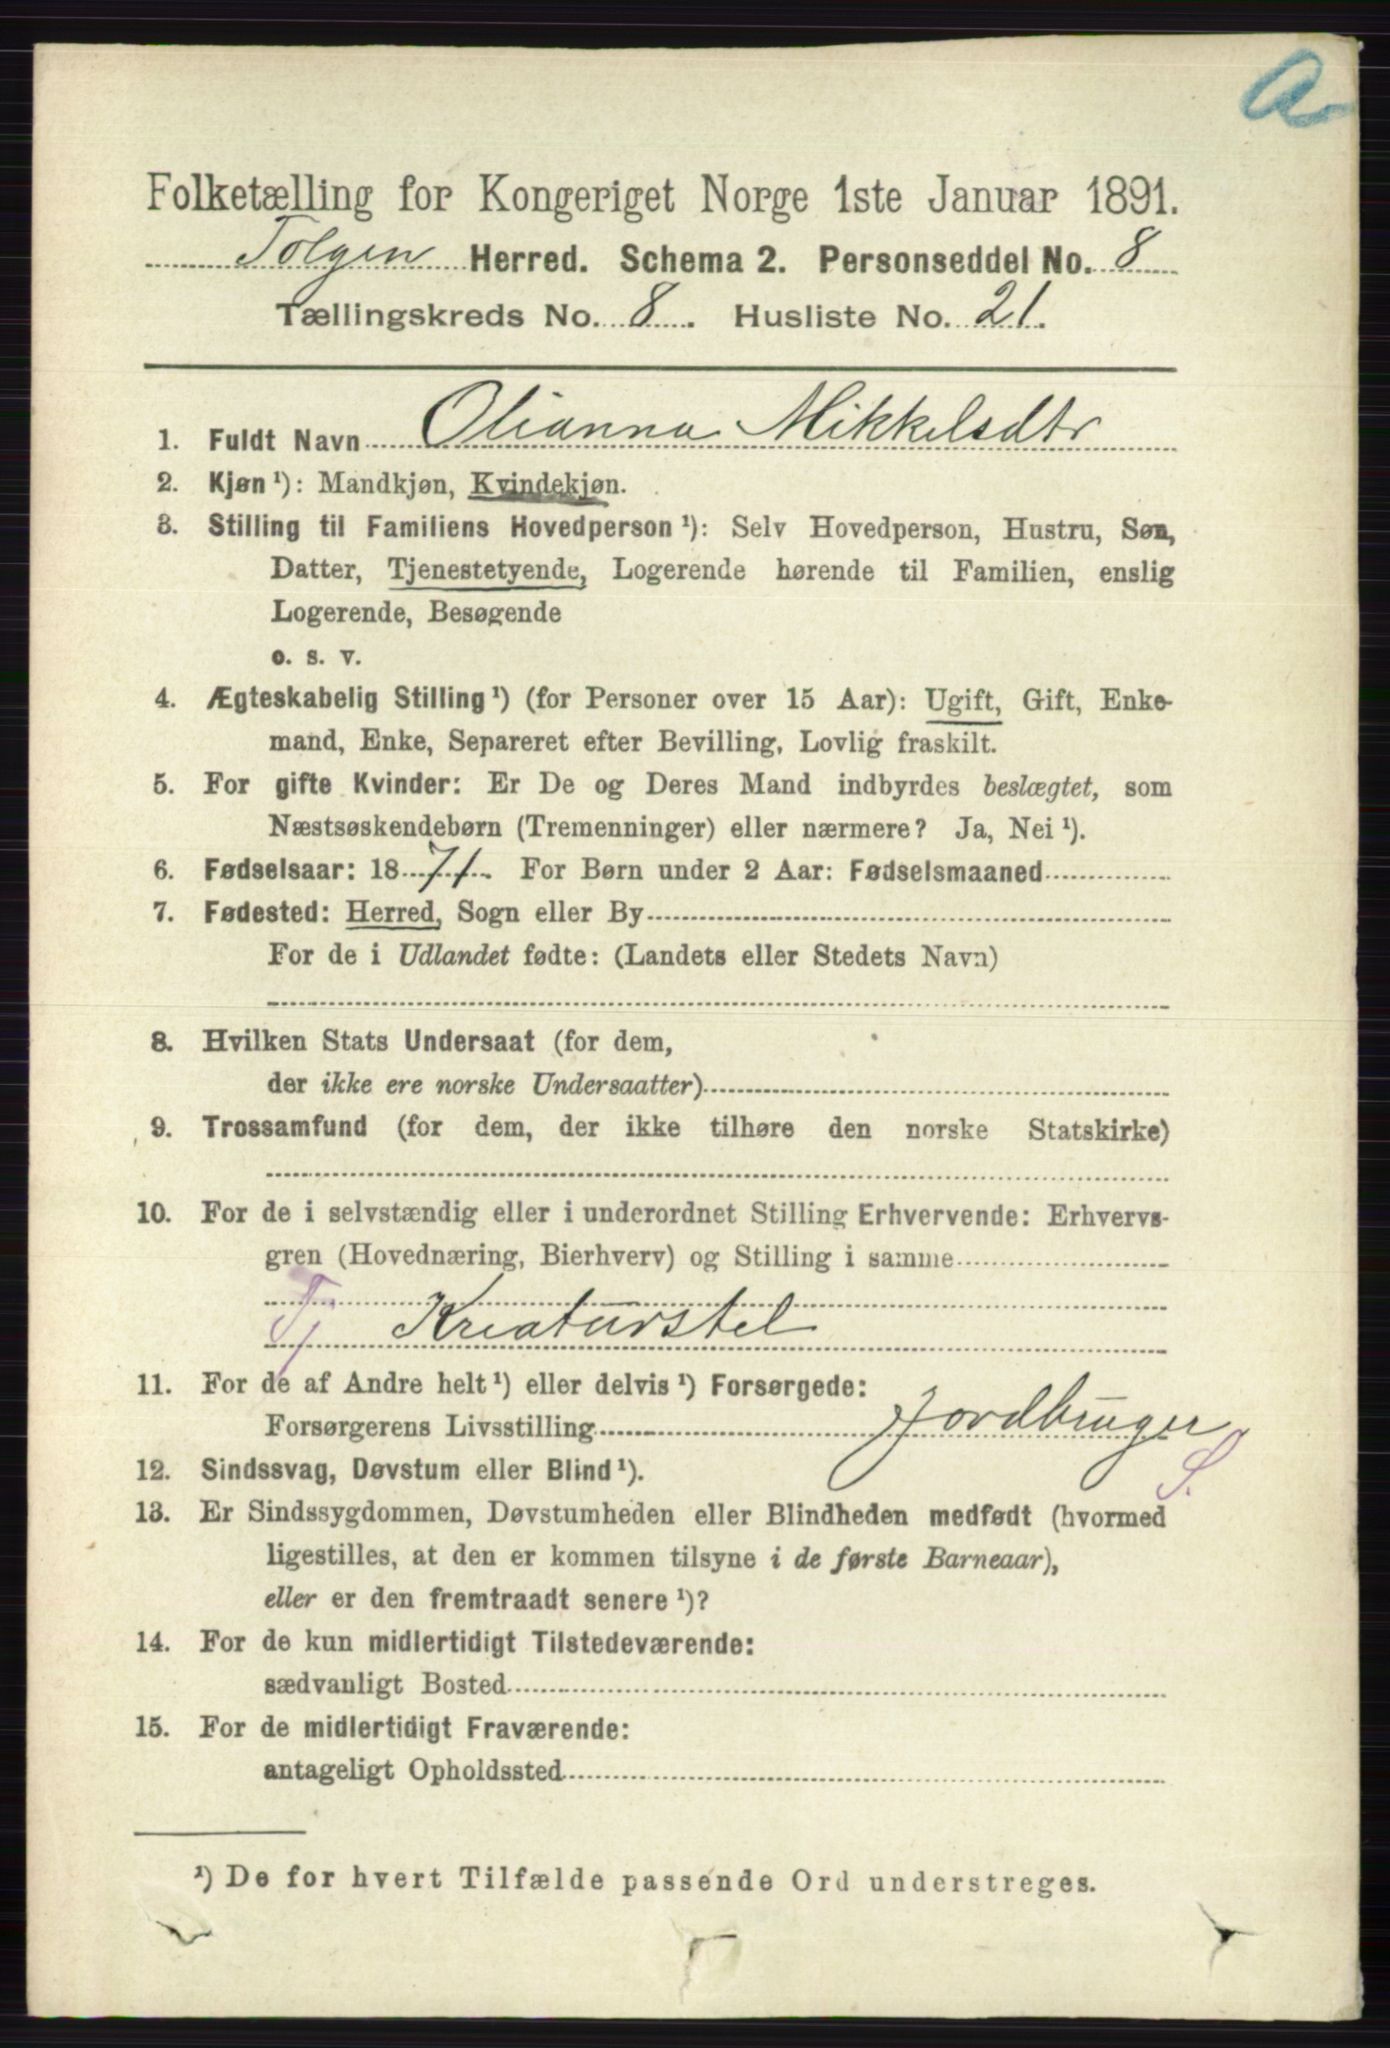 A
Folketælling for Kongeriget Norge 1ste Januar 1891.
Tolgen Herred. Schema 2. Personseddel No. 8
Tællingskreds No. 8. Husliste No. 21.
1. Fuldt Navn Olianna Mikkelsdtr
2. Kjøn ¹): Mandkjøn, Kvindekjøn.
3. Stilling til Familiens Hovedperson ¹): Selv Hovedperson, Hustru, Søn,
Datter, Tjenestetyende, Logerende hørende til Familien, enslig
Logerende, Besøgende
o. s. v.
4. Ægteskabelig Stilling ¹) (for Personer over 15 Aar): Ugift, Gift, Enke-
mand, Enke, Separeret efter Bevilling, Lovlig fraskilt.
5. For gifte Kvinder: Er De og Deres Mand indbyrdes beslægtet, som
Næstsøskendebørn (Tremenninger) eller nærmere? Ja, Nei ¹).
6. Fødselsaar: 1871. For Børn under 2 Aar: Fødselsmaaned
7. Fødested: Herred, Sogn eller By
For de i Udlandet fødte: (Landets eller Stedets Navn)
8. Hvilken Stats Undersaat (for dem,
der ikke ere norske Undersaatter)
9. Trossamfund (for dem, der ikke tilhøre den norske Statskirke)
10. For de i selvstændig eller i underordnet Stilling Erhvervende: Erhvervs-
gren (Hovednæring, Bierhverv) og Stilling i samme
Tj Kreaturstel
11. For de af Andre helt ¹) eller delvis ¹) Forsørgede:
Forsørgerens Livsstilling Jordbruger
S.
12. Sindssvag, Døvstum eller Blind ¹).
13. Er Sindssygdommen, Døvstumheden eller Blindheden medfødt (hvormed
ligestilles, at den er kommen tilsyne i de første Barneaar),
eller er den fremtraadt senere ¹)?
14. For de kun midlertidigt Tilstedeværende:
sædvanligt Bosted
15. For de midlertidigt Fraværende:
antageligt Opholdssted
¹) De for hvert Tilfælde passende Ord understreges.